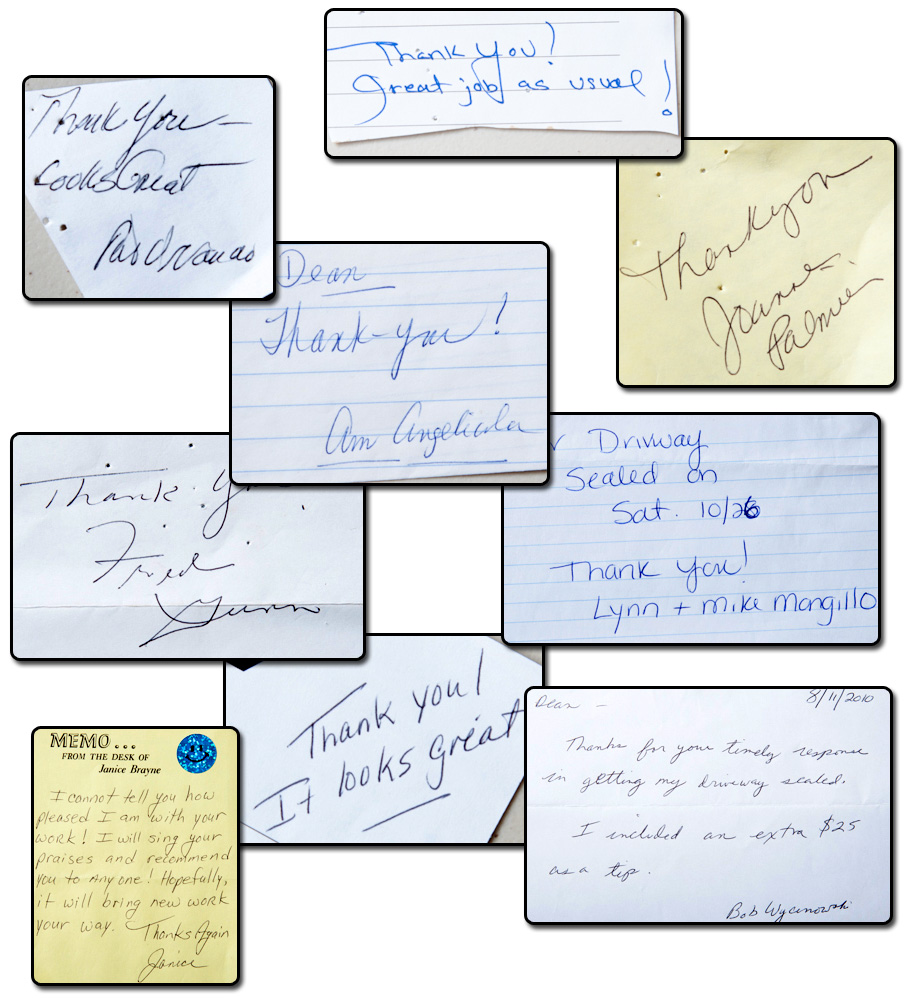 Thank You!
Great job as usual!
Thank You—
Looks Great
Thankyou
Joanne
Palmieri
Dean
Thank-you!
Am Angelicola
Thank You
Fred
Gunn
Drivway
Sealed on
Sat. 10/26
Thank You!
Lynn + Mike Mongillo
Thank you!
It looks great
Dean — 8/11/2010
Thanks for your timely response
in getting my driveway sealed.
I included an extra $25
as a tip.
Bob
MEMO...
FROM THE DESK OF
Janice Brayne
I cannot tell you how
pleased I am with your
work! I will sing your
praises and recommend
you to Anyone! Hopefully,
it will bring new work
your way. Thanks Again
Janice